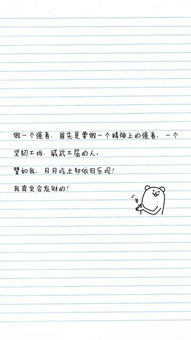 做一个强者，首先是要做一个精神上的强者，一个
坚韧不拔，威武不屈的人，
譬如我，月月吃土却依旧乐观！
我肯定会发财的！